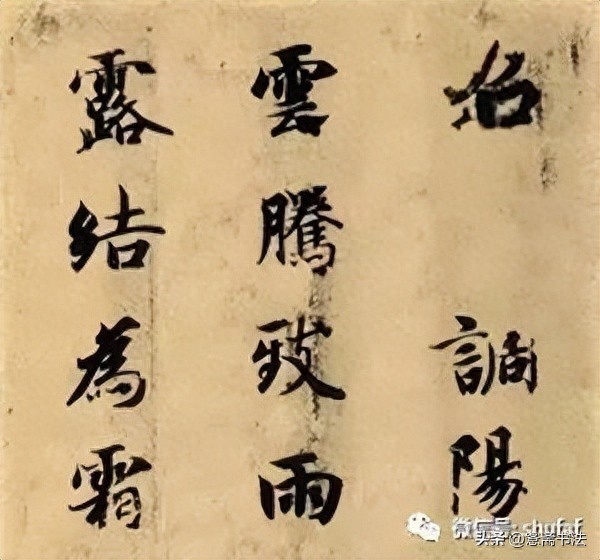 召 調陽
雲騰致雨
露結為霜
微信号: shufaf
头条 @斋书法